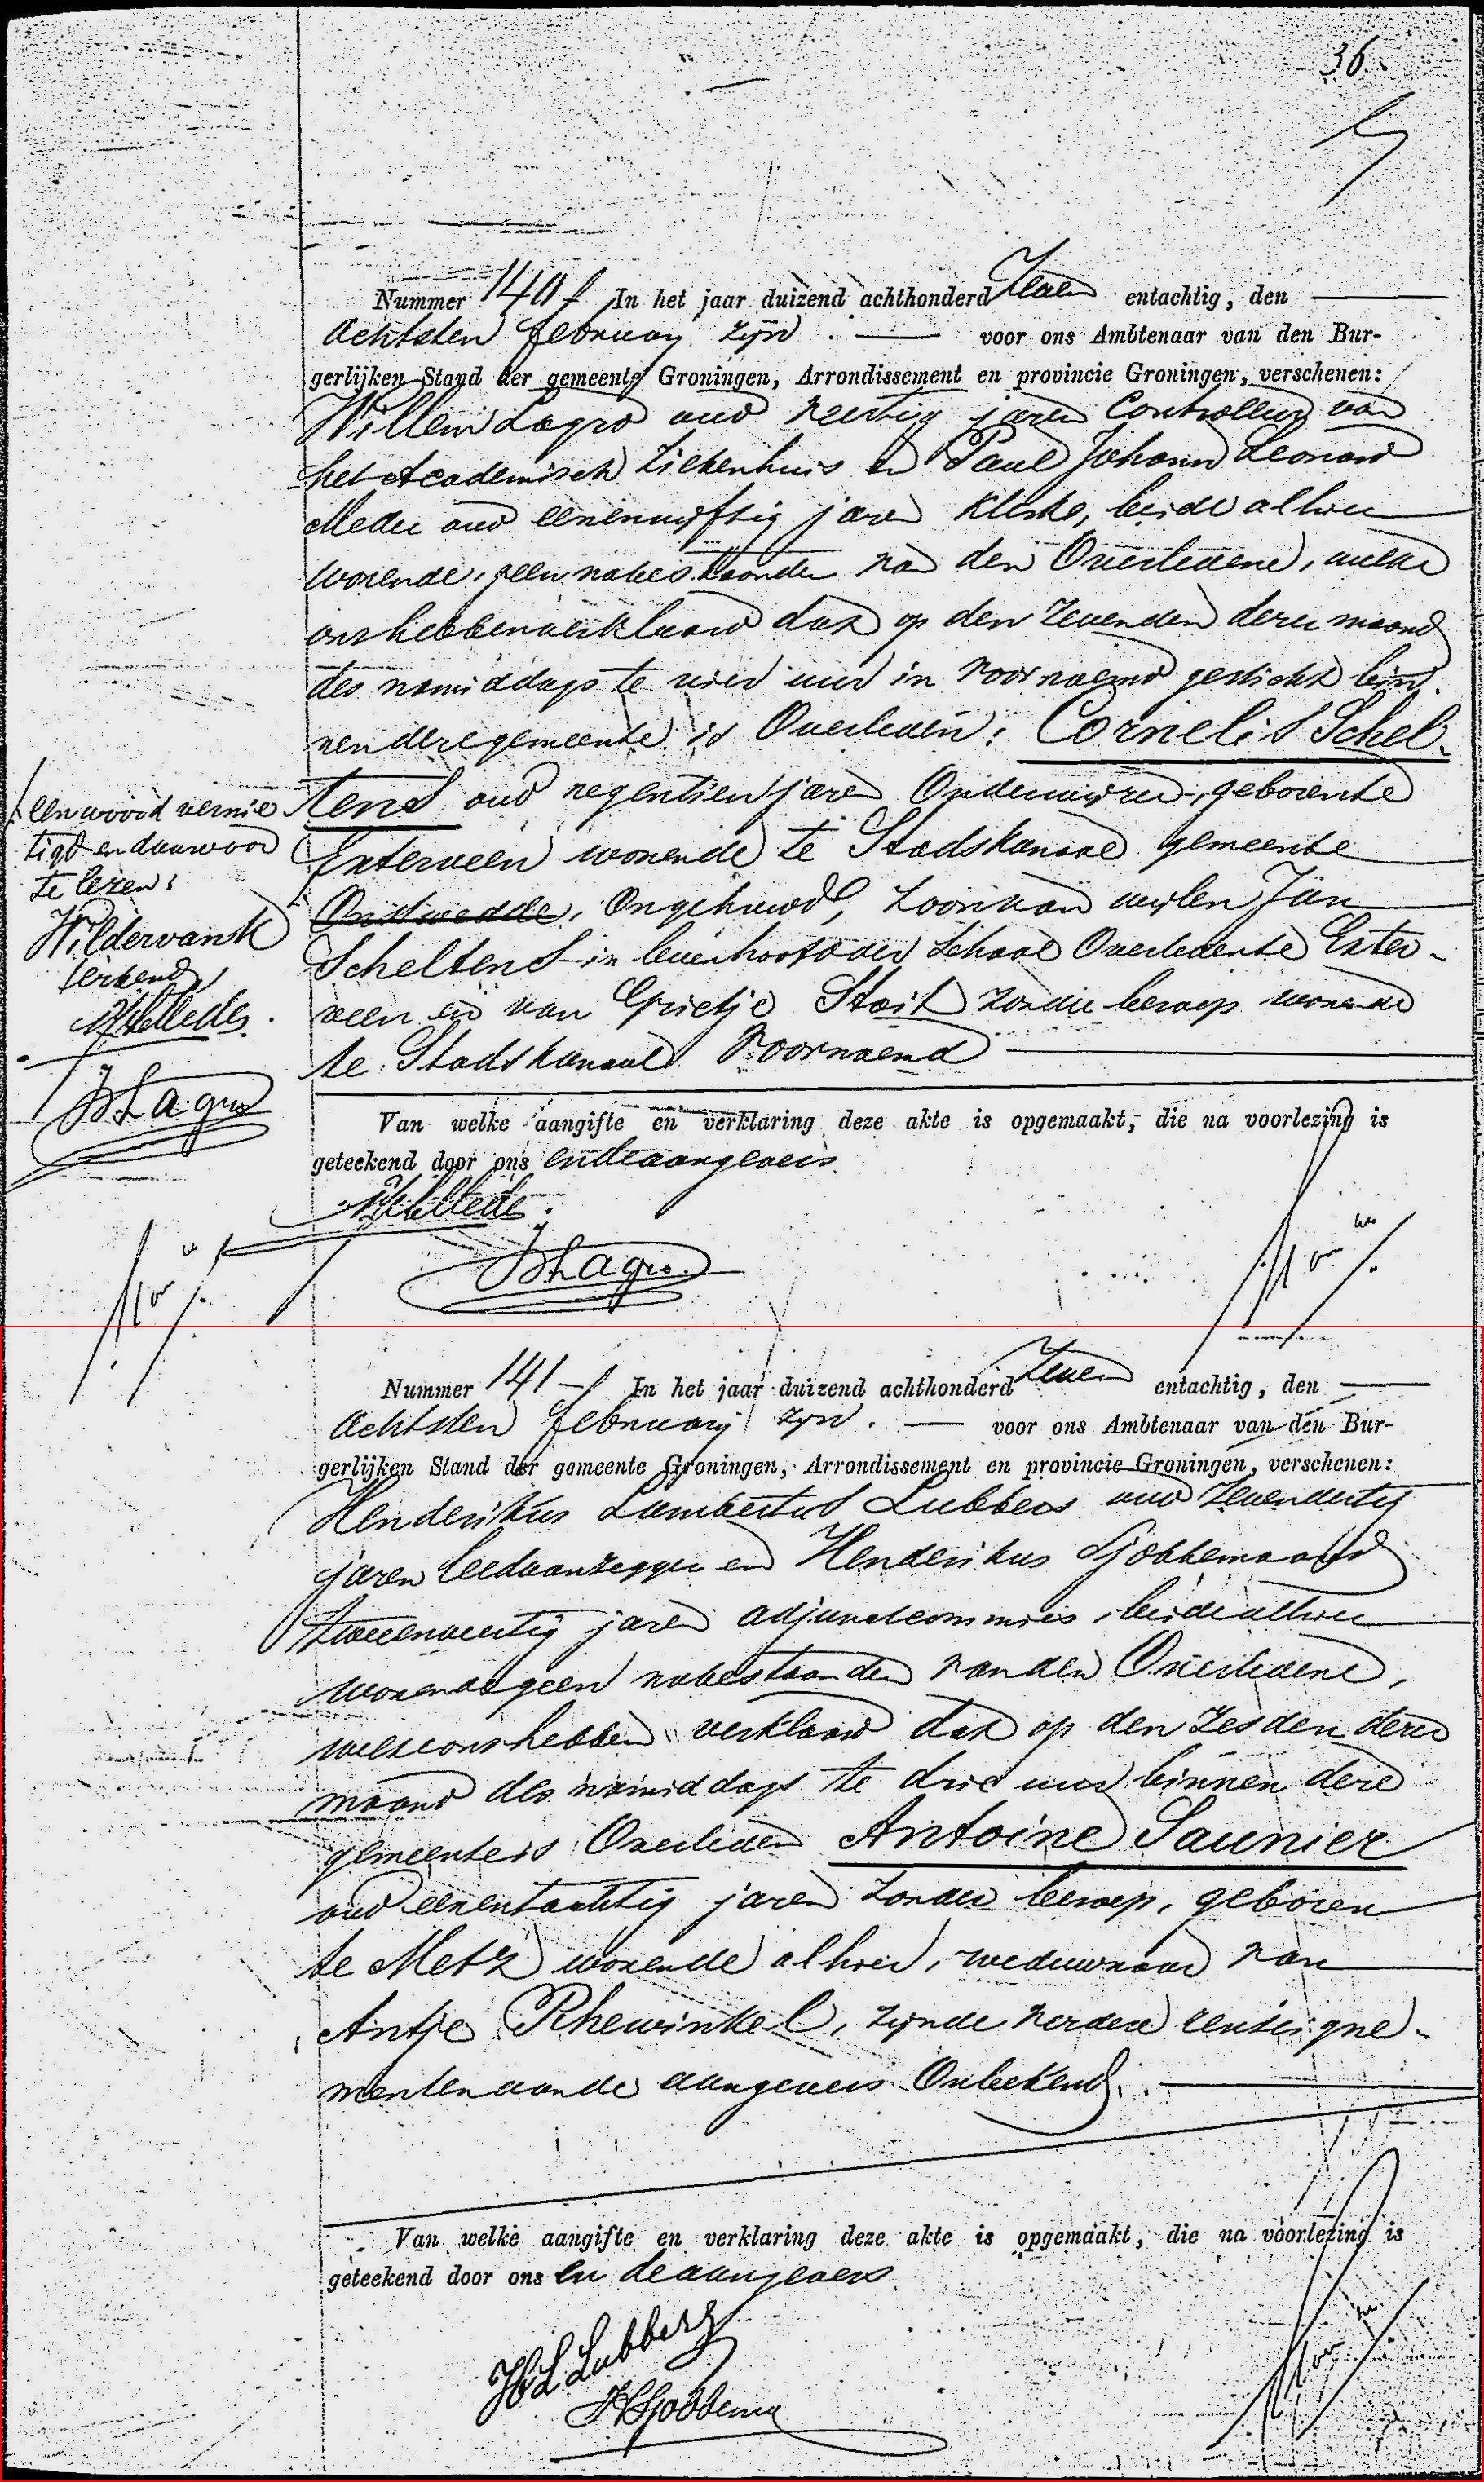 36.
Nummer 140 In het jaar duizend achthonderd Zeven entachtig, den
Achtsten february zijn voor ons Ambtenaar van den Bur-
gerlijken Stand der gemeente Groningen, Arrondissement en provincie Groningen, verschenen:
Willem Lagro oud jaren Controleur van
het Academisch Ziekenhuis en Paul Johann Leonard
Meder oud eenenvijftig jaren Klerk, beide alhier
wonende, geen nabestaanden van den Overledene, welke
ons hebben verklaard dat op den zevenden dezer maand
des namiddags te vier uur in voornoemd gesticht bin-
nen deze gemeente is Overleden: Cornelis Schel-
tens oud negentien jaren Onderwijzer, geboren te
Exterveen wonende te Stadskanaal gemeente
Onstwedde, Ongehuwd, zoon van wijlen Jan
Scheltens in leven hoofd der School Overleden te Exter-
veen en van Grietje Stoit zonder beroep wonende
te Stadskanaal voornoemd
een woord vernie-
tigd en daarvoor
te lezen:
Wildervank
JHLagro
Van welke aangifte en verklaring deze akte is opgemaakt, die na voorlezing is
geteekend door ons en de aangevers
JHLagro.
Nummer 141 In het jaar duizend achthonderd Zeven entachtig, den
Achtsten february zijn. voor ons Ambtenaar van den Bur-
gerlijken Stand der gemeente Groningen, Arrondissement en provincie Groningen, verschenen:
Henderikus Lambertus Lubbers oud zevendertig
jaren leedaanzegger en Henderikus Sjobbema oud
tweeenveertig jaren adjunctcommies, beide alhier
wonende geen nabestaanden van den Overledene,
welke ons hebben verklaard dat op den zesden dezer
maand des namiddags te drie uur binnen deze
gemeente is Overleden Antoine Saunier
oud eenentachtig jaren zonder beroep, geboren
te Metz wonende alhier, weduwnaar van
Antje Rhewinkel, zijnde verdere renseigne-
menten aan de aangevers Onbekend.
Van welke aangifte en verklaring deze akte is opgemaakt, die na voorlezing is
geteekend door ons en de aangevers
HL Lubbers
HSjobbema